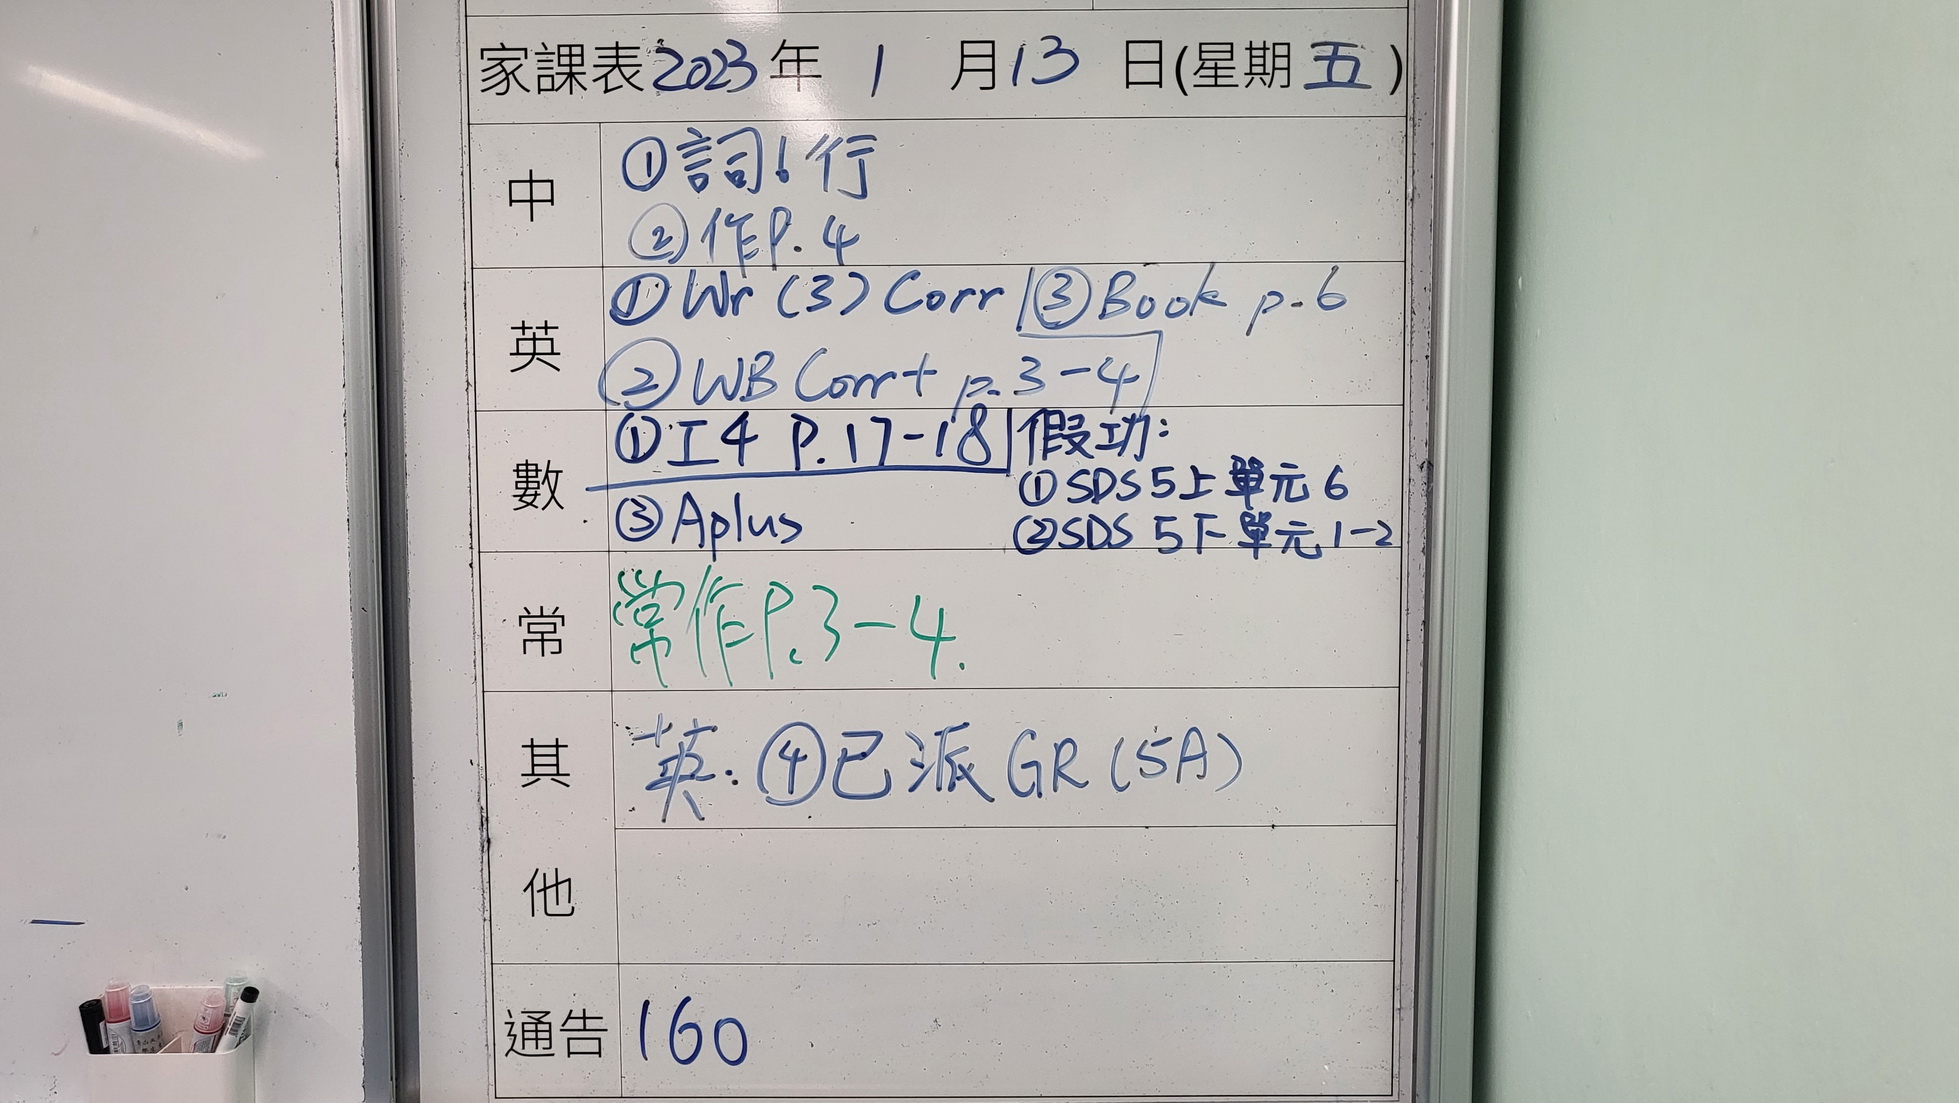 家課表 2023 年 1 月 13 日(星期 五)
中
①詞!行
②作P.4
英
①Wr (3) Corr ③Book p.6
②WB Corr+ p.3-4
數
①工4 P.17-18
③Aplus
假功:
①SDS 5上單元6
②SDS 5下單元1-2
常
常作P.3-4.
其他
英:④已派GR(5A)
通告 160